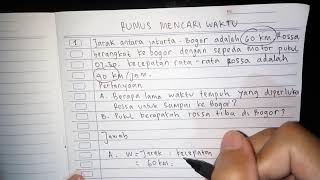 RUMUS MENCARI WAKTU
1 Jarak antara Jakarta - Bogor adalah 60 km. Rossa
berangkat ke bogor dengan sepeda motor pukul
kecepatan rata-rata Rossa adalah
40 km/jam.
Pertanyaan
A. Berapa lama waktu tempuh yang diperluka
Rossa untuk sampai ke Bogor?
B. Pukul berapakah rossa tiba di Bogor?
Jawab
A. W = Jarak : kecepatan
= 60 km :